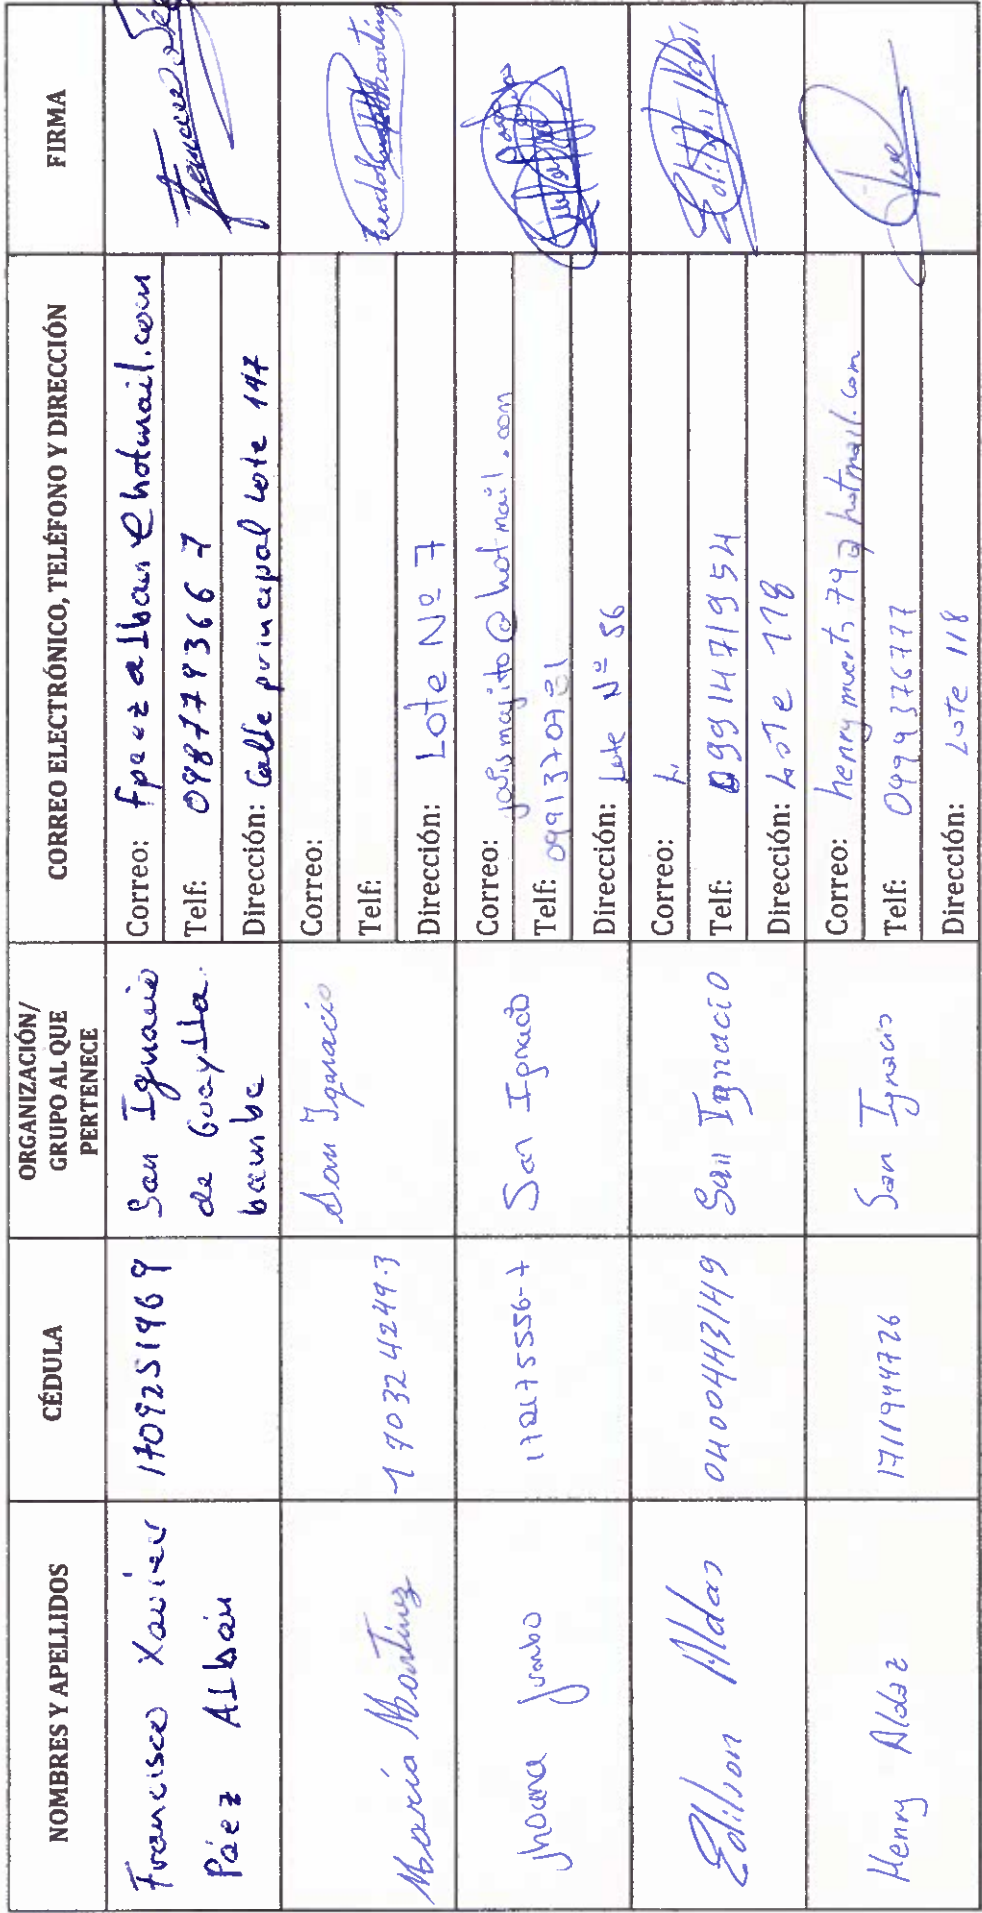 NOMBRES Y APELLIDOS
CÉDULA
ORGANIZACIÓN/
GRUPO AL QUE
PERTENECE
CORREO ELECTRÓNICO, TELÉFONO Y DIRECCIÓN
FIRMA
Francisco Xavier
Páez Albán
1709251969
San Ignacio
de Guaylla
bamba
Correo: fpaezalban@hotmail.com
Telf: 0987793667
Dirección: Calle principal Lote 147
María Martínez
170324249-3
San Ignacio
Correo:
Telf:
Dirección: Lote Nº 7
Jhoana Jumbo
172175556-7
San Ignacio
Correo: @hotmail.com
Telf:
Dirección: Lote Nº 56
Edilson Aldas
0400443149
San Ignacio
Correo:
Telf: 0991471954
Dirección: LoTe 118
Henry Aldaz
1711944726
San Ignacio
Correo:
Telf: 0999376777
Dirección: LoTe 118